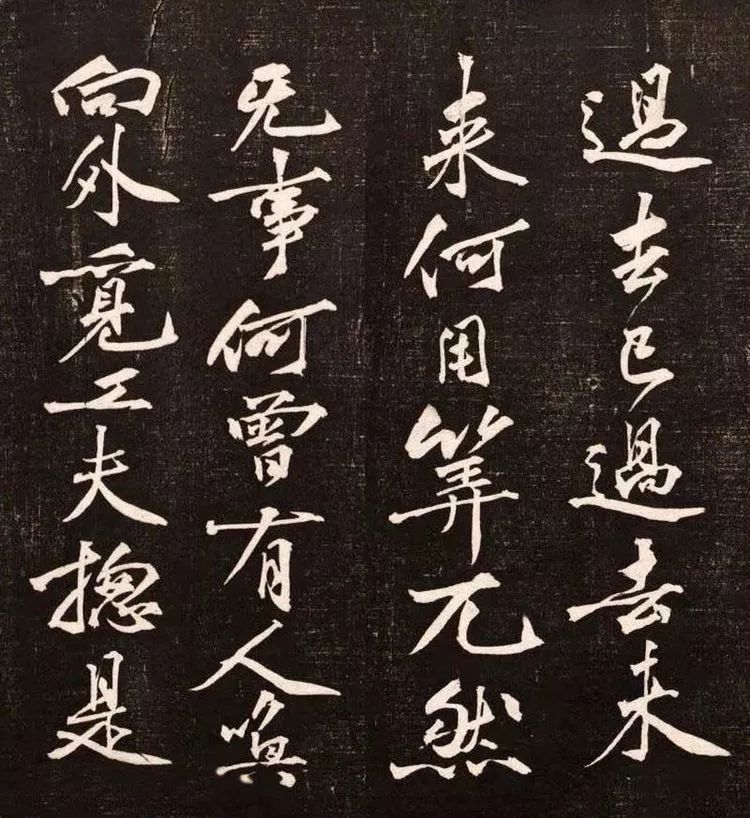 過去已過去未
来何用筭兀然
无事何曾有人喚
向外覓工夫揔是